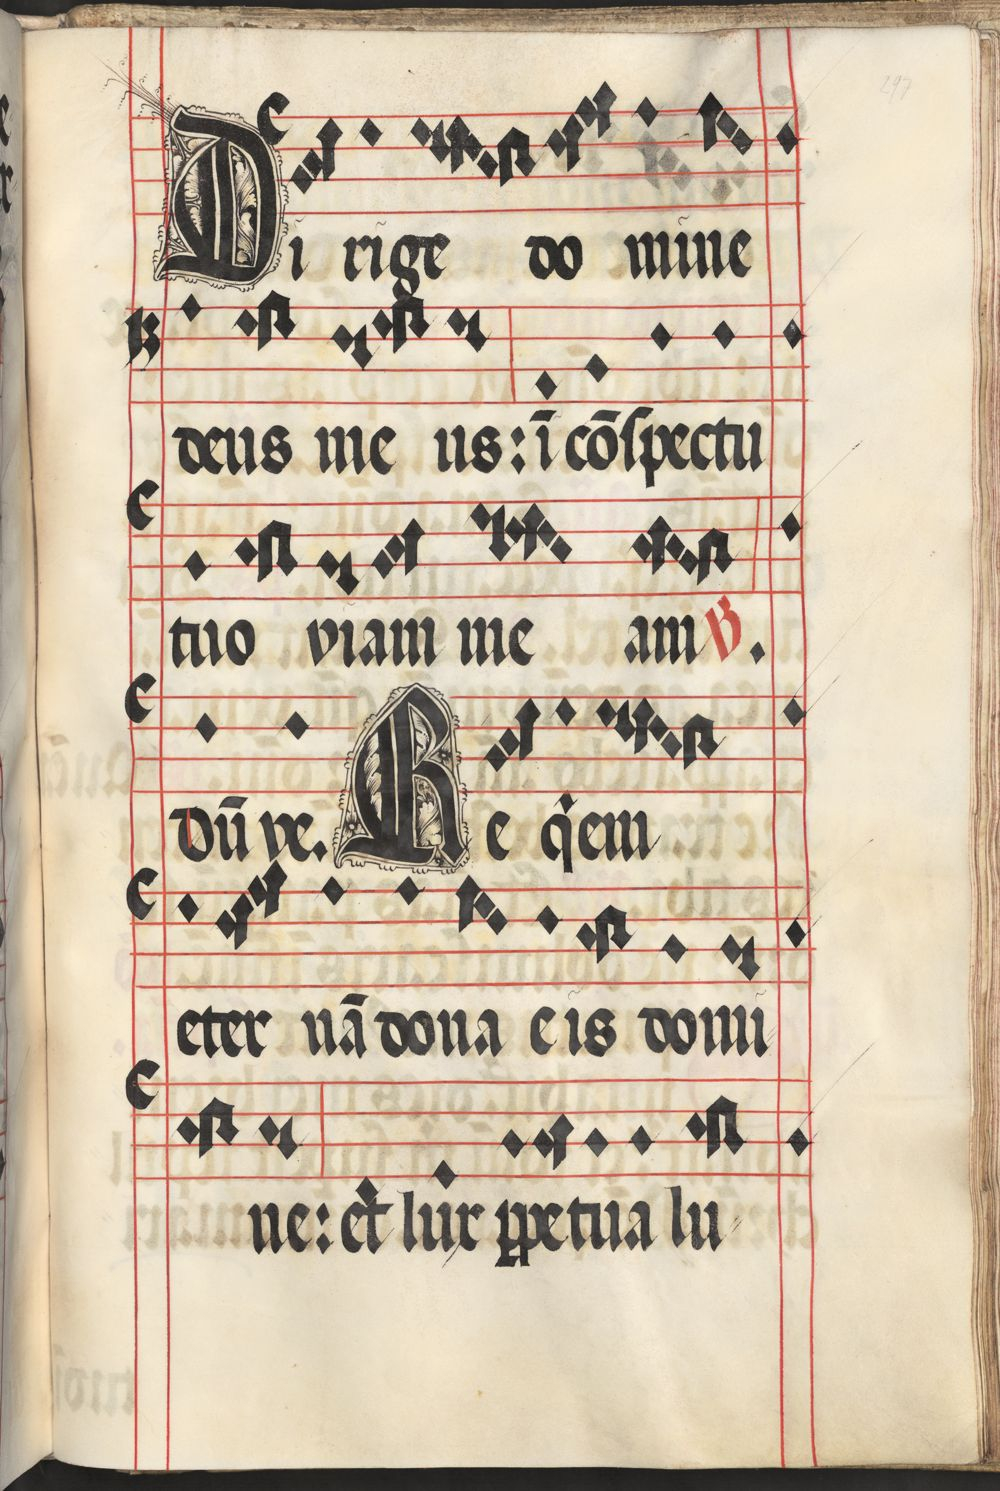 297
Di rige do mine
deus me us: ī cōspectu
tuo viam me am V.
Dūͬ ve. Re qͥem
eter nā dona eis domi
ne: et lux ꝑpetua lu